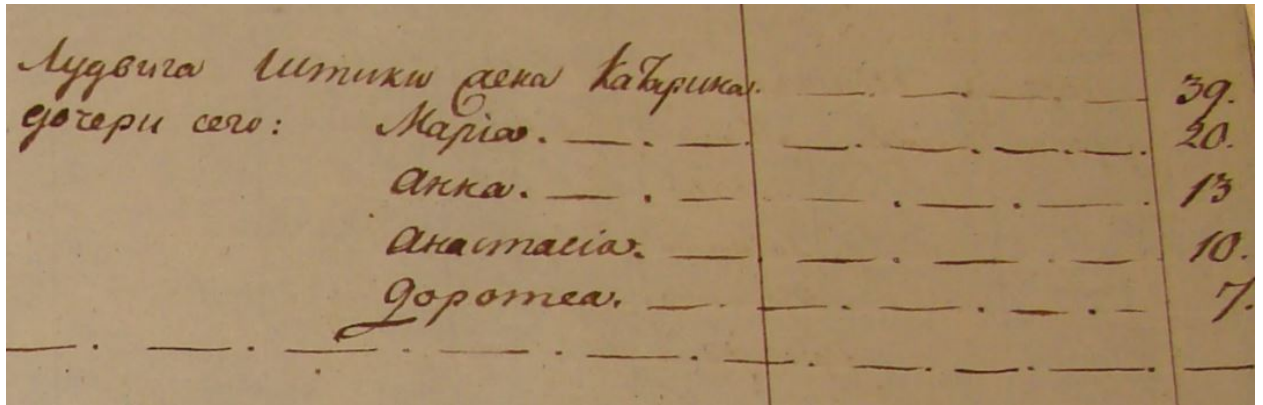 Лудвига Штики жена Катрина. 39.
дочери сего: Марія. 20.
Анна. 13
Анастасія. 10.
Доротеа. 7.